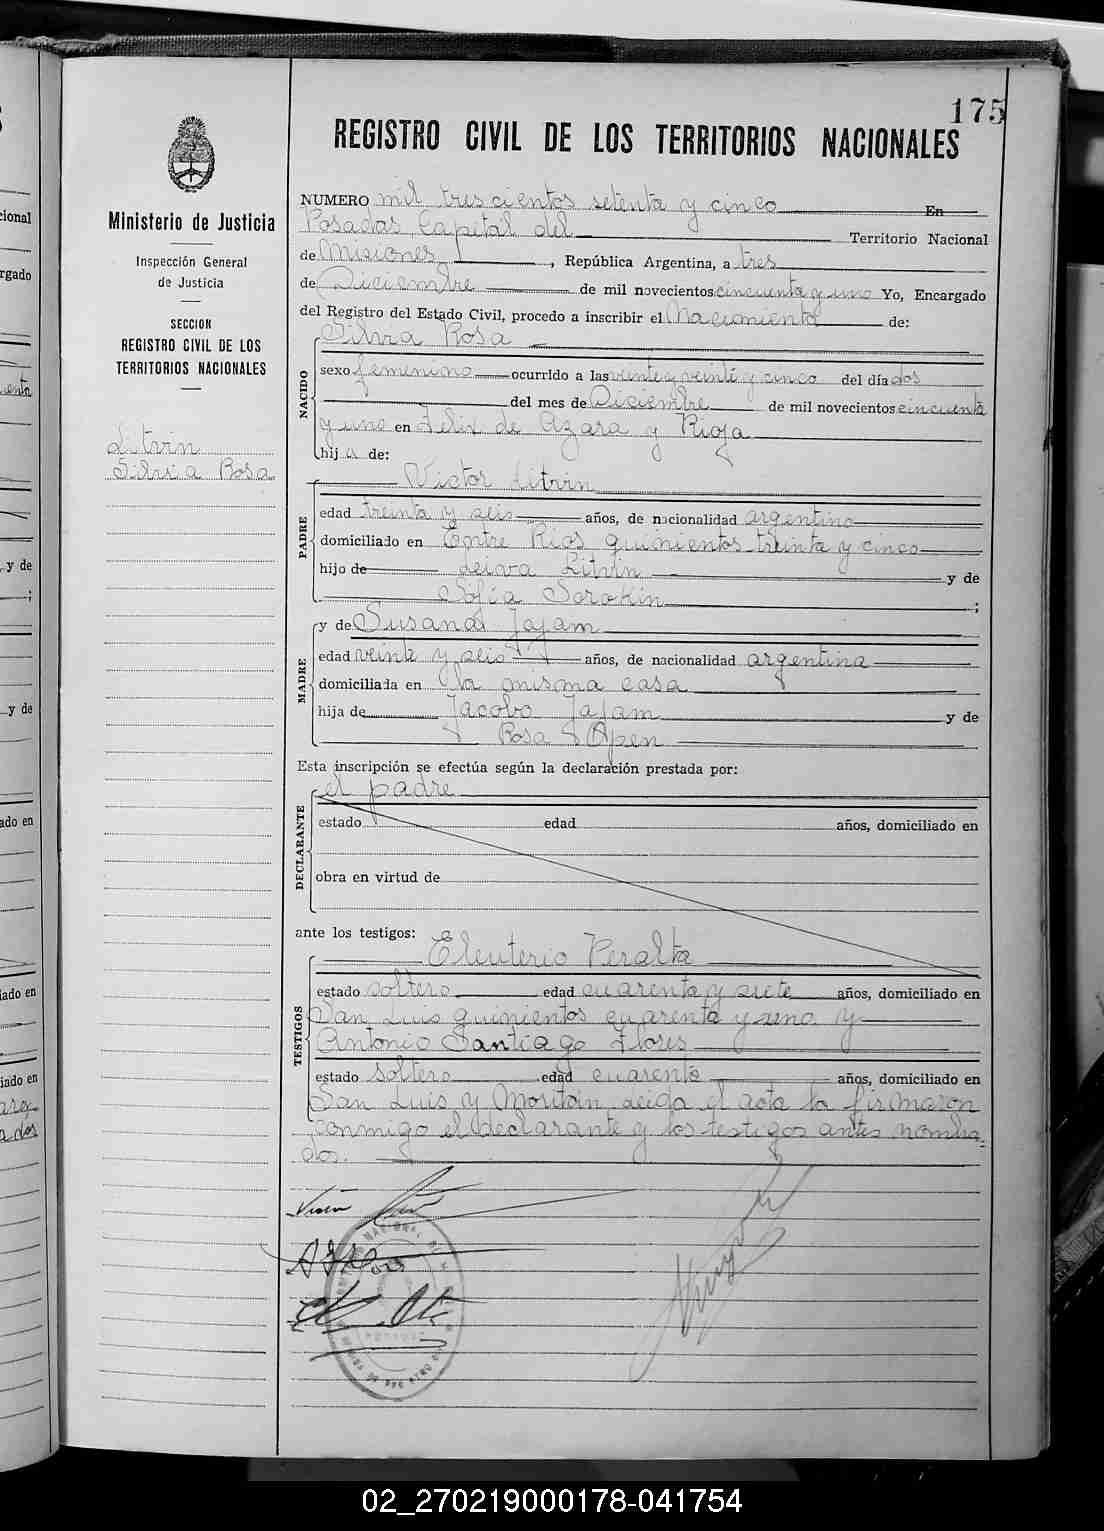 175
REGISTRO CIVIL DE LOS TERRITORIOS NACIONALES
Ministerio de Justicia
Inspección General
de Justicia
SECCION
REGISTRO CIVIL DE LOS
TERRITORIOS NACIONALES
Litvin
Silvia Rosa
NUMERO mil trescientos setenta y cinco En
Posadas Capital del Territorio Nacional
de Misiones, República Argentina, a tres
de Diciembre de mil novecientos cincuenta y uno Yo, Encargado
del Registro del Estado Civil, procedo a inscribir el Nacimiento de:
Silvia Rosa
NACIDO
sexo femenino ocurrido a las veinte y veinti y cinco del día dos
del mes de Diciembre de mil novecientos cincuenta
y uno en Felix de Azara y Rioja
hija de:
Victor Litvin
PADRE
edad treinta y seis años, de nacionalidad argentino
domiciliado en Entre Rios quinientos treinta y cinco
hijo de Leiva Litvin y de
Sofia Sorokin;
y de Susana Jajam
MADRE
edad veinte y seis años, de nacionalidad argentina
domiciliada en la misma casa
hija de Jacobo Jajam y de
Rosa Apen
Esta inscripción se efectúa según la declaración prestada por:
el padre
DECLARANTE
estado edad años, domiciliado en
obra en virtud de
ante los testigos:
Eleuterio Peralta
TESTIGOS
estado soltero edad cuarenta y siete años, domiciliado en
San Luis quinientos cuarenta y uno y
Antonio Santiago Flores
estado soltero edad cuarenta años, domiciliado en
San Luis y Moritán leida el acta la firmaron
conmigo el declarante y los testigos antes nombra-
dos.
02_270219000178-041754